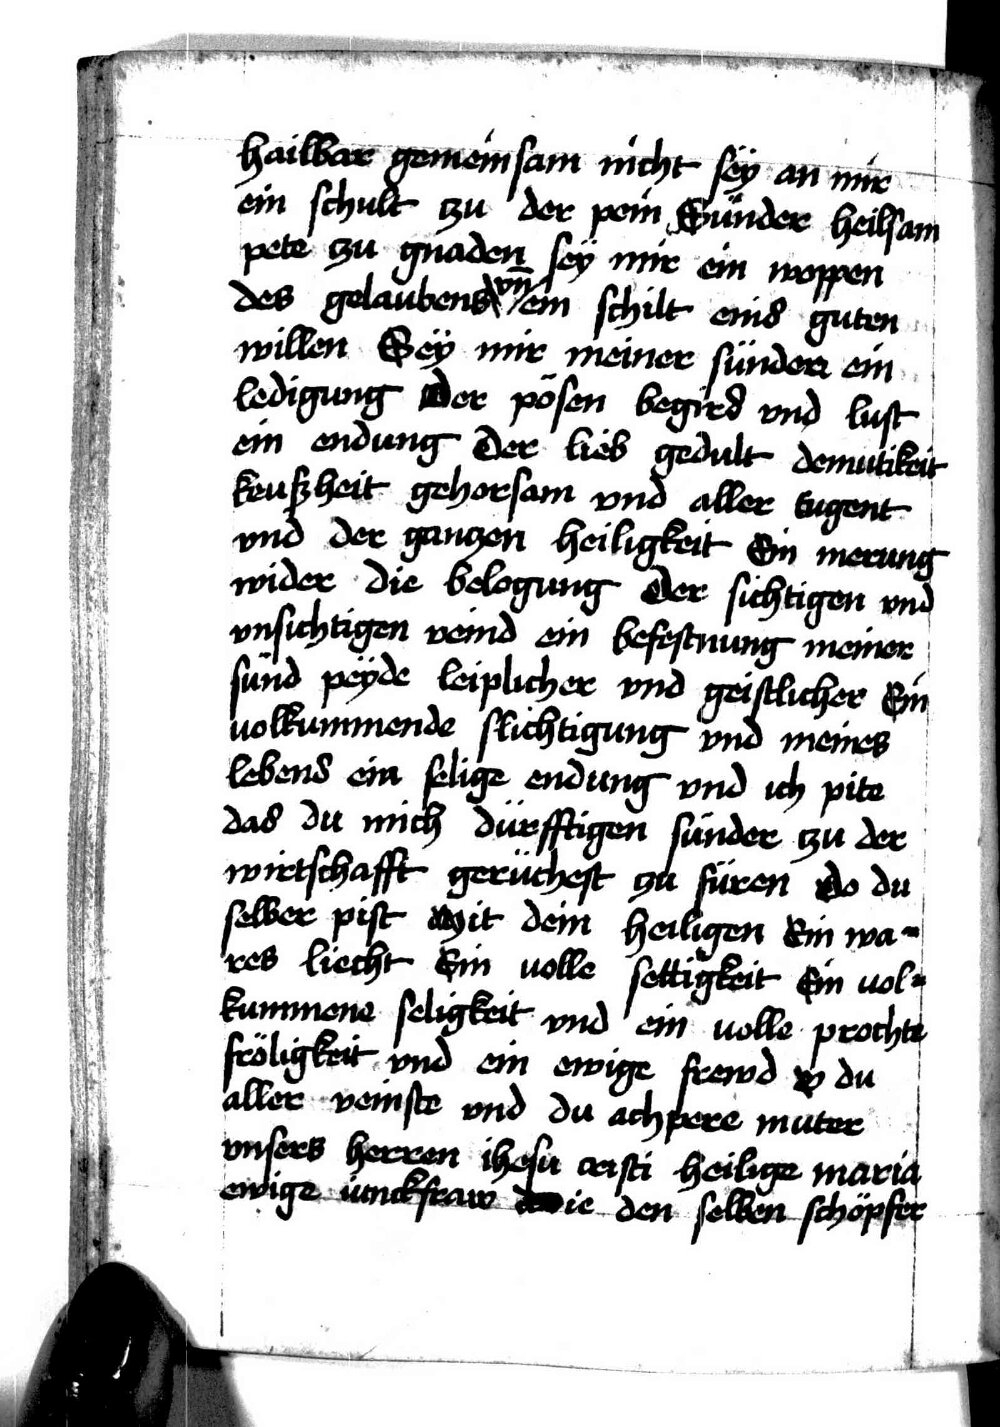 hailbar gemeinsam nicht sëy an mir
ein schult czu der pein Sünder heilsam
pete czu gnaden sëy mir ein woppen
des gelaubens vn̄ ein schilt eins guten
willen Sëy mir meiner sünden ein
ledigung Der pösen begird vnd lust
ein endung Der lieb gedult demutikeit
keuscheit gehorsam vnd aller tugent
vnd der ganczen heiligkeit Ein merung
wider die belogung Der sichtigen vnd
vnsichtigen veind ein befestnung meiner
sünd pëyde leiplicher vnd geistlicher Ein
uolkummende slichtigung vnd meines
lebens ein selige endung vnd ich pite
das du mich dürfftigen sünder czu der
wirtschafft gerüchest czu füren Do du
selber pist Mit dein heiligen Ein wa-
res liecht Ein uolle settigkeit Ein uol-
kummene seligkeit vnd ein uolle prochte
fröligkeit vnd ein ewige frewd O du
aller veinste vnd du achpere muter
vnsers herren ihesu cristi heilige maria
ewige iunckfraw die den selben schöpfer